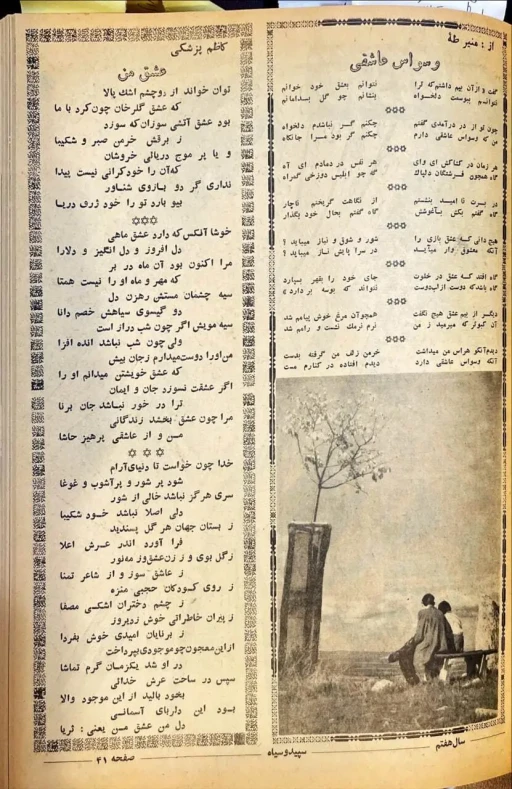 از : منیر طه
وسواس عاشقی
گفت و از آن بیم داشتم که ترا
نتوانم بعشق خود خوانم
نتوانم بپوست دلخواه
بنشانم چو گل بدامانم
چون تو از در درآمدی گفتم
چکنم گر نباشدم دلخواه
من که وسواس عاشقی دارم
چکنم گر بود مرا جانکاه
هر زمان در کشاکش ای وای
هر نفس در دمادم ای آه
گاه همچون فرشتگان دلپاک
گه چو ابلیس دوزخی گمراه
در برت تا امید بنشستم
از نگاهت گریختم ناچار
گاه گفتم بکش بآغوشش
گاه گفتم بحال خود بگذار
هیچ دانی که عشق بازی را
شور و شوق و نیاز میباید ؟
آنکه معشوق وار میآید
در سرا پایش ناز میباید ؟
گاه افتد که عشق در خلوت
جای خود را بقهر بسپارد
گاه باشد که دوست از لب دوست
نتواند که بوسه بردارد »
دیگر از بیم عشق هیچ نگفت
همچو آن مرغ خوش پیامم شد
آن کبوتر که میرمید ز من
نرم نرمک نشست و رامم شد
دیدم آنکو هراس من میداشت
خرمن زلف من گرفته بدست
آنکه وسواس عاشقی دارد
دیدم افتاده در کنارم مست
کاظم پزشکی
عشق من
توان خواند از دو چشم اشک پالا
که عشق گلرخان چون کرد با ما
بود عشق آتشی سوزان که سوزد
ز برقش خرمن صبر و شکیبا
و یا پر موج دریائی خروشان
که آن را خود کرانی نیست پیدا
نداری گر دو بازوی شناور
بیو بارد تو را خود ژرف دریا
خوشا آنکس که دارد عشق ماهی
دل افروز و دل انگیز و دلارا
مرا اکنون بود آن ماه در بر
که مهر و ماه او را نیست همتا
سیه چشمان مستش رهزن دل
دو گیسوی سیاهش خصم دانا
سیه مویش اگر چون شب دراز است
ولی چون شب نباشد انده افزا
من او را دوست میدارم ز جان بیش
که عشق خویشتن میدانم او را
اگر عشقت نسوزد جان و ایمان
ترا در خور نباشد جان برنا
مرا چون عشق بخشد زندگانی
من و از عاشقی پرهیز حاشا
خدا چون خواست تا دنیای آرام
شود پر شور و پر آشوب و غوغا
سری هرگز نباشد خالی از شور
دلی اصلا نباشد خود شکیبا
ز بستان جهان هر گل پسندید
فرا آورد اندر عرش اعلا
ز گل بوی و ز زن عشق و ز مه نور
ز عاشق سوز و از شاعر تمنا
ز روی کودکان حجبی منزه
ز چشم دختران اشکی مصفا
ز پیران خاطراتی خوش ز دیروز
ز برنایان امیدی خوش بفردا
از این معجون چو موجودی بپرداخت
در او شد یکزمان گرم تماشا
سپس در ساحت عرش خدائی
بخود بالید از این موجود والا
بود این دلربای آسمانی
دل من عشق من یعنی : ثریا
سال هفتم
سپید و سیاه
صفحه ۴۱